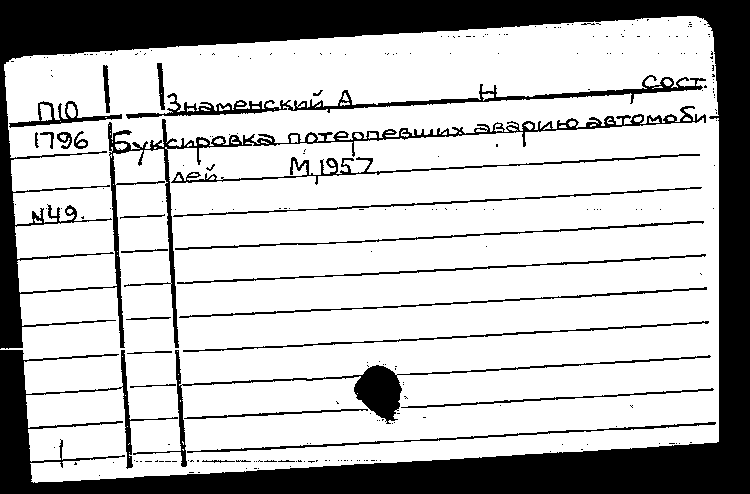 П10 Знаменский, А Н , сост.
1796 Буксировка потерпевших аварию автомоби-
лей. М, 1957.
N49.
1